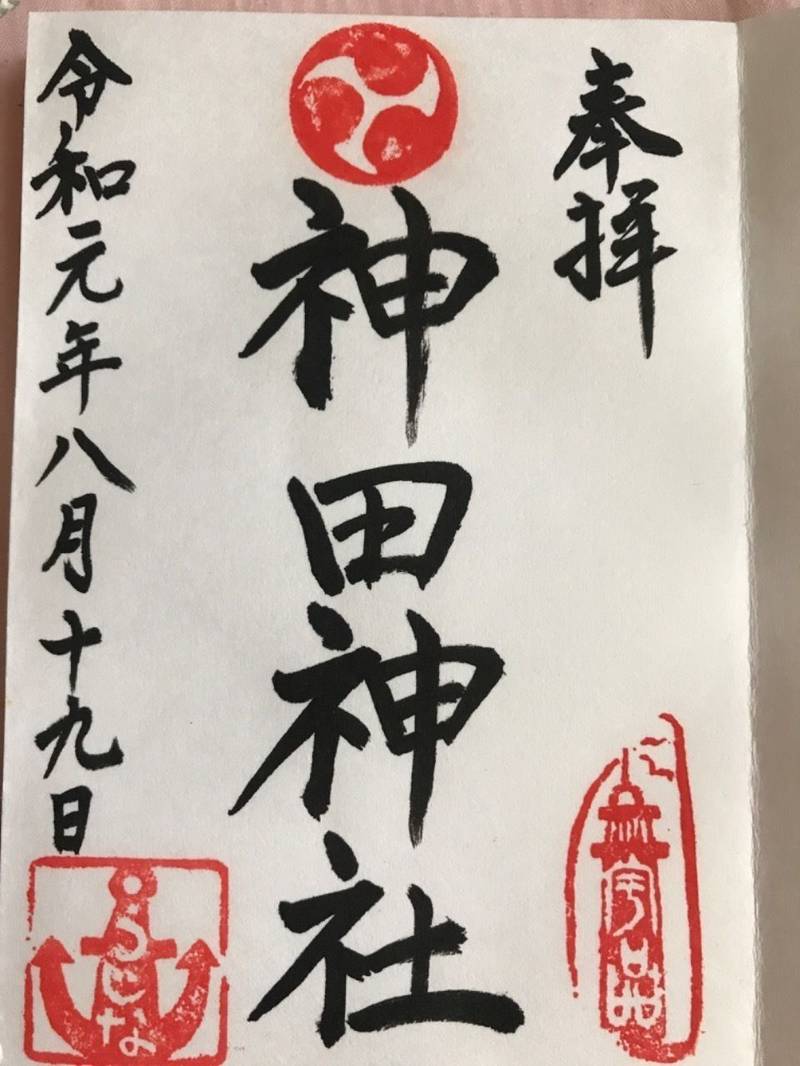 奉拝
神田神社
令和元年八月十九日
宇品
うじな